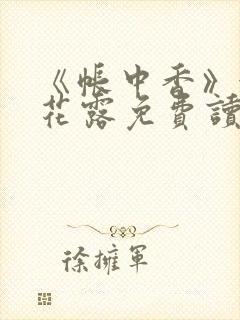 《帳中香》
花露免費讀
徐擁軍